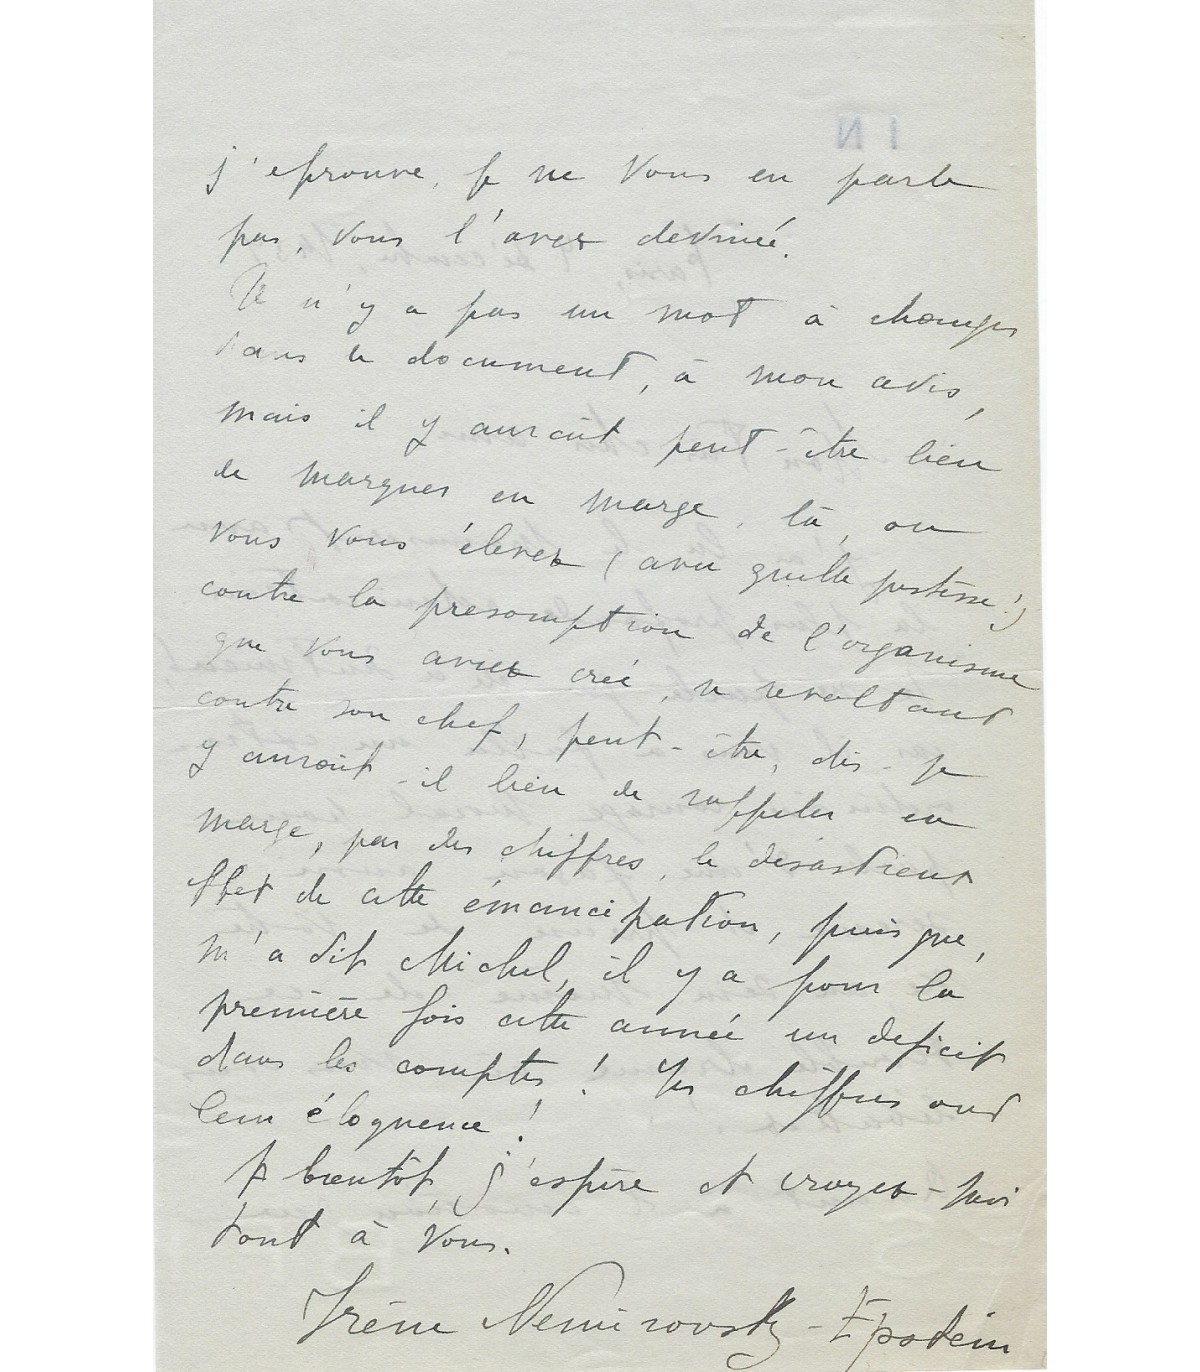 j'éprouve, je ne vous en parle
pas, vous l'avez devinée.
Il n'y a pas un mot à changer
dans le document, à mon avis,
mais il y aurait peut-être lieu
de marquer en marge, là, ou
vous vous élevez (avec quelle justesse!)
contre la présomption de l'organisme
que vous aviez créé, se révoltant
contre son chef, peut-être, dis-je
y aurait-il lieu de rappeler en
marge, par des chiffres, le désastreux
effet de cette émancipation, puisque,
m'a dit Michel, il y a pour la
première fois cette année un deficit
dans les comptes! Les chiffres ont
leur éloquence!
A bientôt, j'espère et croyez-moi
tout à vous.
Irène Nemirovsky-Epstein